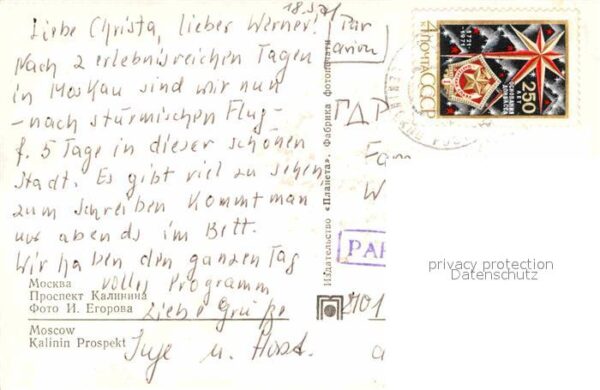 18.5.71
Liebe Christa, lieber Werner!
Nach 2 erlebnisreichen Tagen
in Moskau sind wir nun
- nach stürmischen Flug -
f. 5 Tage in dieser schönen
Stadt. Es gibt viel zu sehen,
zum Schreiben kommt man
nur abends im Bett.
Wir haben den ganzen Tag
volles Programm
Liebe Grüße
Inge u. Horst.
Москва
Проспект Калинина
Фото И. Егорова
Moscow
Kalinin Prospekt
Издательство «Планета». Фабрика фотопечати
Par
avion
4 ПОЧТА СССР
1721-1971
250
ЛЕТ
ОСНОВАНИЯ
ДОНБАССА
ГДР
Fam
W
PAR
privacy protection
Datenschutz